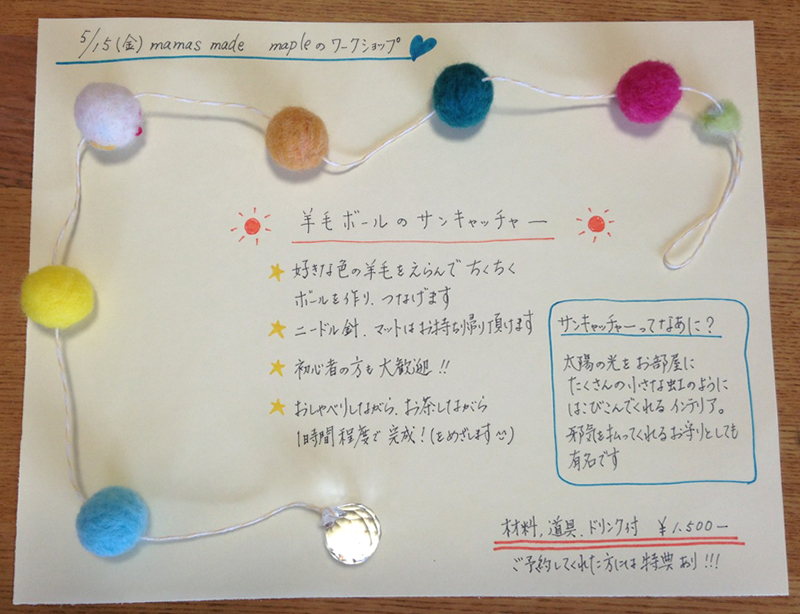 5/15(金) mamas made mapleのワークショップ
羊毛ボールのサンキャッチャー
好きな色の羊毛をえらんで ちくちく
ボールを作り、つなげます
ニードル針、マットはお持ち帰り頂けます
初心者の方も大歓迎!!
おしゃべりしながら、お茶しながら
1時間程度で完成!(をめざします)
サンキャッチャーってなあに?
太陽の光をお部屋に
たくさんの小さな虹のように
はこびこんでくれるインテリア。
邪気を払ってくれるお守りとしても
有名です
材料、道具、ドリンク付 ¥1.500ー
ご予約してくれた方には特典あり!!!